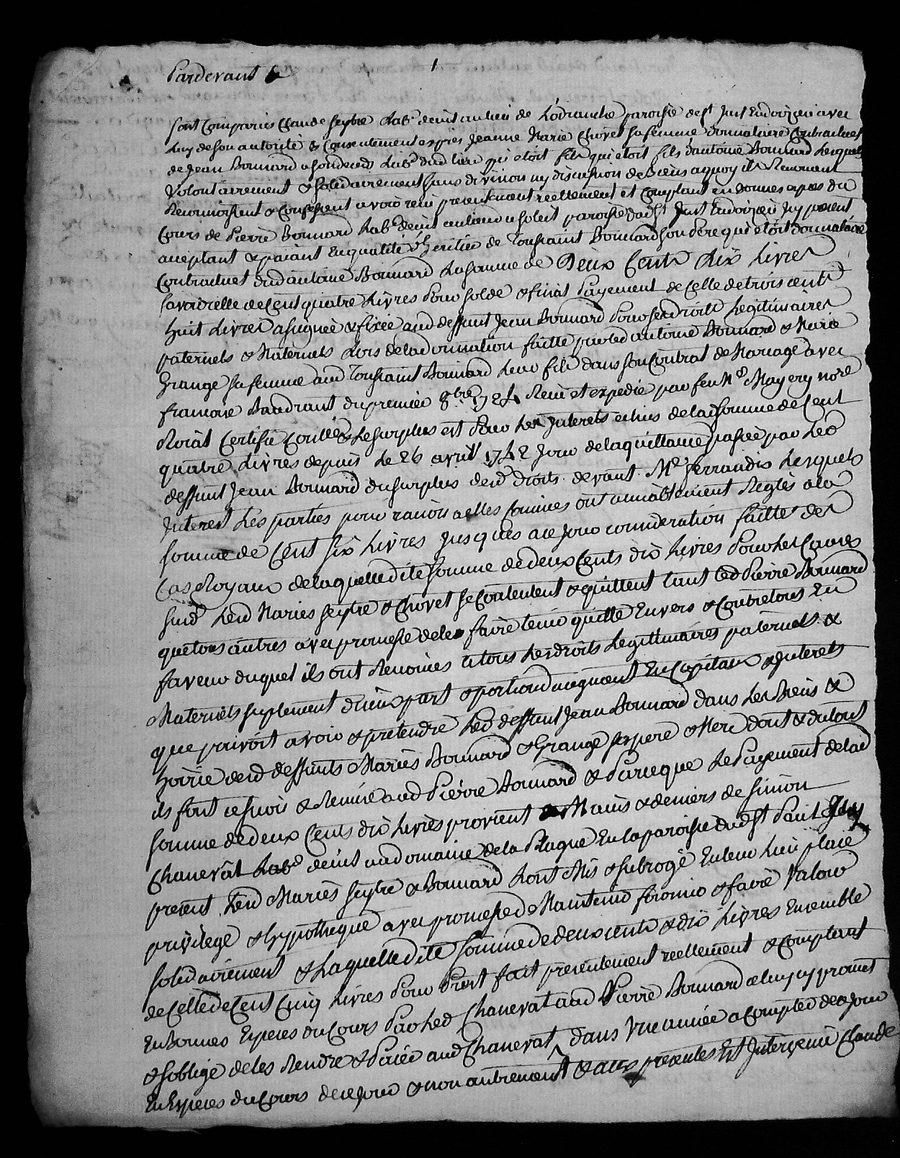 Pardevant
1
Sont Comparus Claude Seytre Lab.r demt au lieu de paroisse de St Just Endoizieu avec
Luy de son autorité & Consentement exprès Jeanne Marie Chovet sa femme donnataire Contractuelle
de Jean Bonnard Lab.r dud lieu qui etoit fils qui etoit fils d'antoine Bonnard Lesquels
Volontairement & solidairement sans division ny discussion de biens aquoy ils Renoncent
Reconnoissent & Confessent avoir reçu presentement reellement et Comptant en bonnes espes du
Cours de Pierre Bonnard Lab.r demt au lieu paroisse dudt St Just Endoizieu Icy present
acceptant & paiant En qualité d'heritier de Toussaint Bonnard son Pere qui etoit donnataire
Contractuel dud antoine Bonnard La somme de Deux Cents Dix Livres
savoir celle de Cent quatre Livres Pour solde & final Payement de Celle de trois cents
huit Livres assignée & fixée aud deffunt Jean Bonnard Pour ses droits Legitimaires
paternels & Maternels Lors de la donnation faitte par led antoine Bonnard & Marie
Grange sa femme aud Toussaint Bonnard Leur fils dans son Contrat de Mariage avec
francoise Baudrant du premier 8bre 1724 Reçu et expedié par feu Me Mayery nore
Roial Certifié Conllé & Le surplus est Pour Les Interets echus de lad somme de Cent
quatre Livres depuis Le 26 avril 1742 Jour de la quittance passée par Led
deffunt Jean Bonnard du surplus desd droits devant Me ferrandis Lesquels
Interest Les parties pour raison a elles connües ont amiablement Reglés a la
somme de Cent six Livres Jusques a ce Jour consideration faitte des
Cas Royaux de laquelle dite somme de deux Cents dix Livres Pour Les Causes
susd Lesd Mariés Seytre & Chovet se Contentent & quittent tant led Pierre Bonnard
que tous autres avec promesse de le faire tenir quitte Envers & Contre tous En
faveur duquel ils ont Renoncés a tous Les droits Legittimaires paternels &
Maternels suplement d'iceux part & portion augment En Capitaux & Interets
que pouvoit avoir & pretendre Led deffunt Jean Bonnard dans Les Biens &
hoirie desd deffunts Mariés Bonnard & Grange ses pere & Mere dont & du tout
ils font cession & Remise aud Pierre Bonnard & Parceque Le Payement de lad
somme de deux Cents dix Livres provient de Mains & deniers de Simon
Chanevat Lab.r demt au domaine de la Plagne En la paroisse dudt St Paul Icy
present Lesd Mariés Seytre & Bonnard L'ont Mis & subrogé En leur Lieu place
privilege & hypotheque avec promesse de Maintenir fournir & faire Valoir
solidairement & Laquelle dite somme de deux cents & dix Livres Ensemble
de Celle de Cent Cinq Livres Pour Prest fait presentement reellement & Comptant
En Bonnes Especes du Cours Par led Chanevat aud Pierre Bonnard a promet
& s'oblige de les Rendre & Paier aud Chanevat dans Une année a Compter de ce Jour
En Especes du Cours de ce Jour & non autrement & aux presentes Est Intervenu Claude